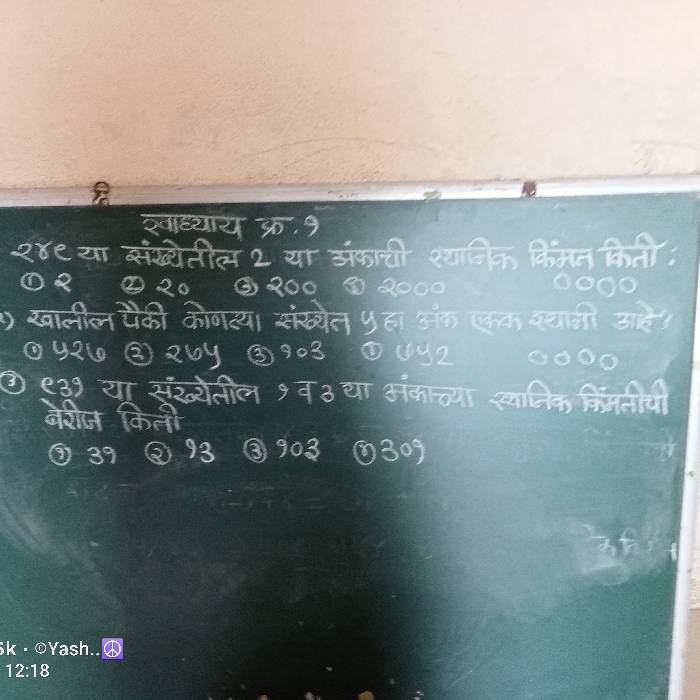 स्वाध्याय क्र. १
२४९ या संख्येतील 2 या अंकाची स्थानिक किंमत किती :
① २ ② २० ③ २०० ④ २००० ००००
२) खालील पैकी कोणत्या संख्येत ५ हा अंक एकक स्थानी आहे?
① ५२७ ② २७५ ③ १०३ ④ ७५२ ००००
③ ९३१ या संख्येतील १ व ३ या अंकाच्या स्थानिक किंमतीची
बेरीज किती
① ३१ ② १३ ③ १०३ ④ ३०१
5k · ©Yash..☮
12:18